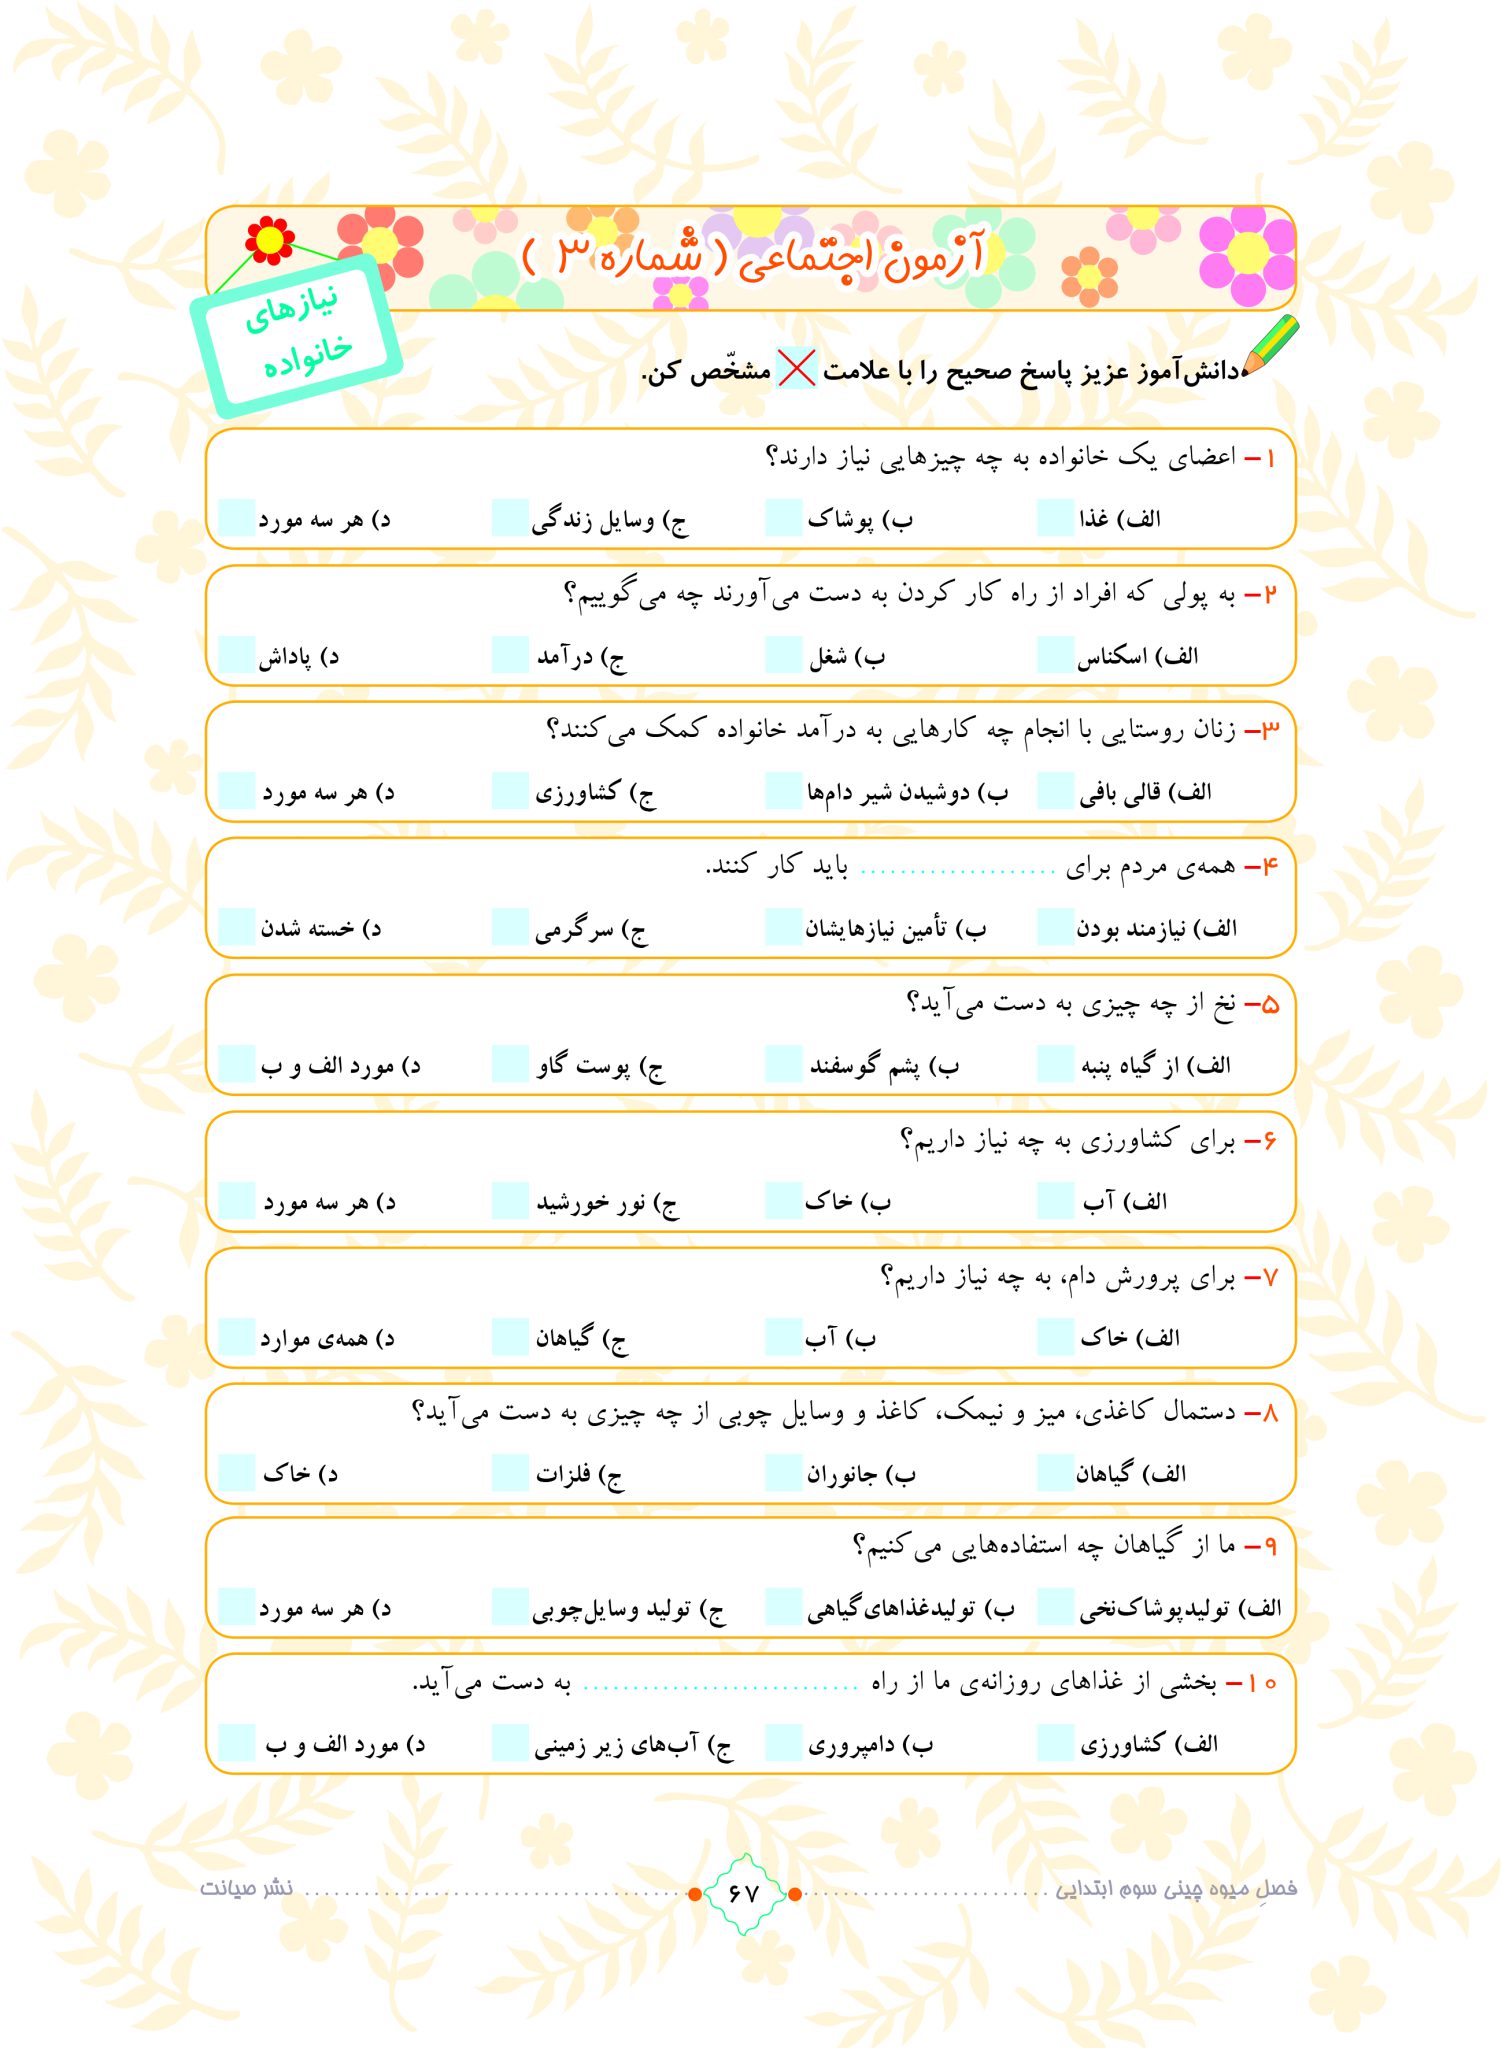 آزمون اجتماعی ( شماره ۳ )
نیازهای
خانواده
دانش‌آموز عزیز پاسخ صحیح را با علامت مشخّص کن.
۱– اعضای یک خانواده به چه چیزهایی نیاز دارند؟
الف) غذا ب) پوشاک ج) وسایل زندگی د) هر سه مورد
۲– به پولی که افراد از راه کار کردن به دست می‌آورند چه می‌گوییم؟
الف) اسکناس ب) شغل ج) درآمد د) پاداش
۳– زنان روستایی با انجام چه کارهایی به درآمد خانواده کمک می‌کنند؟
الف) قالی بافی ب) دوشیدن شیر دام‌ها ج) کشاورزی د) هر سه مورد
۴– همه‌ی مردم برای .................... باید کار کنند.
الف) نیازمند بودن ب) تأمین نیازهایشان ج) سرگرمی د) خسته شدن
۵– نخ از چه چیزی به دست می‌آید؟
الف) از گیاه پنبه ب) پشم گوسفند ج) پوست گاو د) مورد الف و ب
۶– برای کشاورزی به چه نیاز داریم؟
الف) آب ب) خاک ج) نور خورشید د) هر سه مورد
۷– برای پرورش دام، به چه نیاز داریم؟
الف) خاک ب) آب ج) گیاهان د) همه‌ی موارد
۸– دستمال کاغذی، میز و نیمک، کاغذ و وسایل چوبی از چه چیزی به دست می‌آید؟
الف) گیاهان ب) جانوران ج) فلزات د) خاک
۹– ما از گیاهان چه استفاده‌هایی می‌کنیم؟
الف) تولیدپوشاک‌نخی ب) تولیدغذاهای‌گیاهی ج) تولید وسایل‌چوبی د) هر سه مورد
۱۰– بخشی از غذاهای روزانه‌ی ما از راه ............................ به دست می‌آید.
الف) کشاورزی ب) دامپروری ج) آب‌های زیر زمینی د) مورد الف و ب
فصلِ میوه چینی سوم ابتدایی ......................... ۶۷ ....................................... نشر صیانت